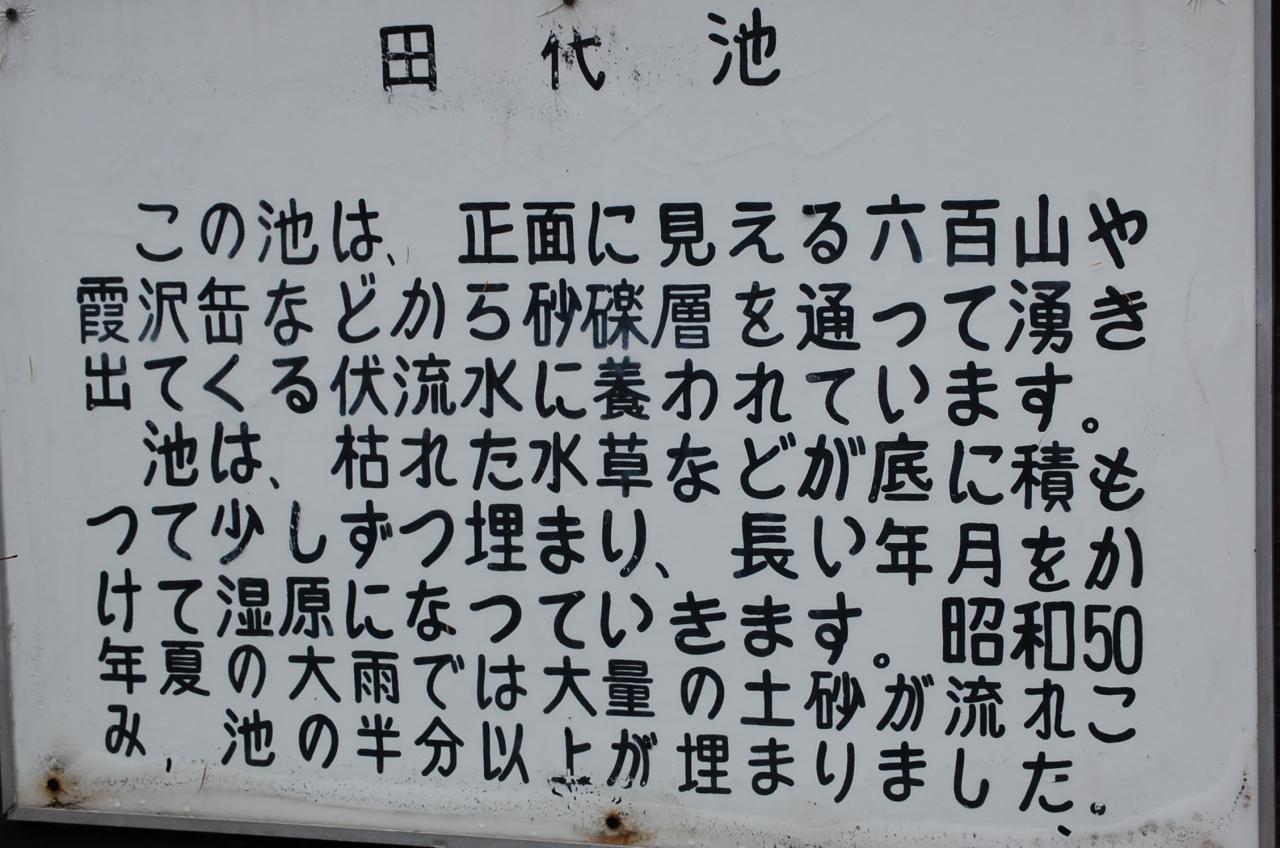 田代池
この池は、正面に見える六百山や
霞沢岳などから砂礫層を通って湧き
出てくる伏流水に養われています。
池は、枯れた水草などが底に積も
って少しずつ埋まり、長い年月をか
けて湿原になっていきます。昭和50
年夏の大雨では大量の土砂が流れこ
み、池の半分以上が埋まりました。